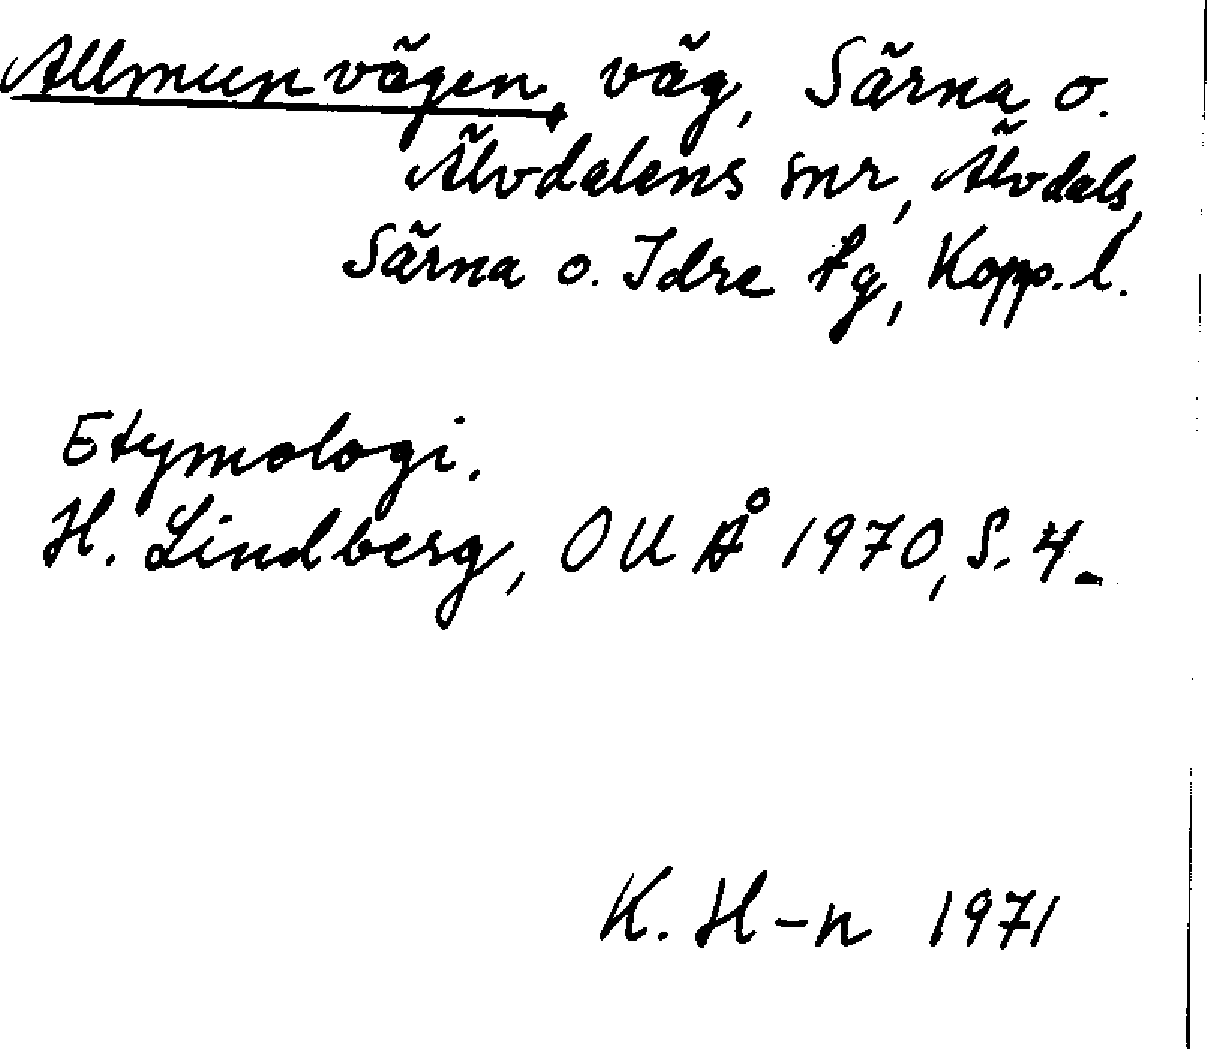 Allmunvägen, väg, Särna o.
Älvdalens snr, Älvdals,
Särna o. Idre tg, Kopp. l.
Etymologi.
H. Lindberg, OUÅ 1970, S. 4.
K. H-n 1971